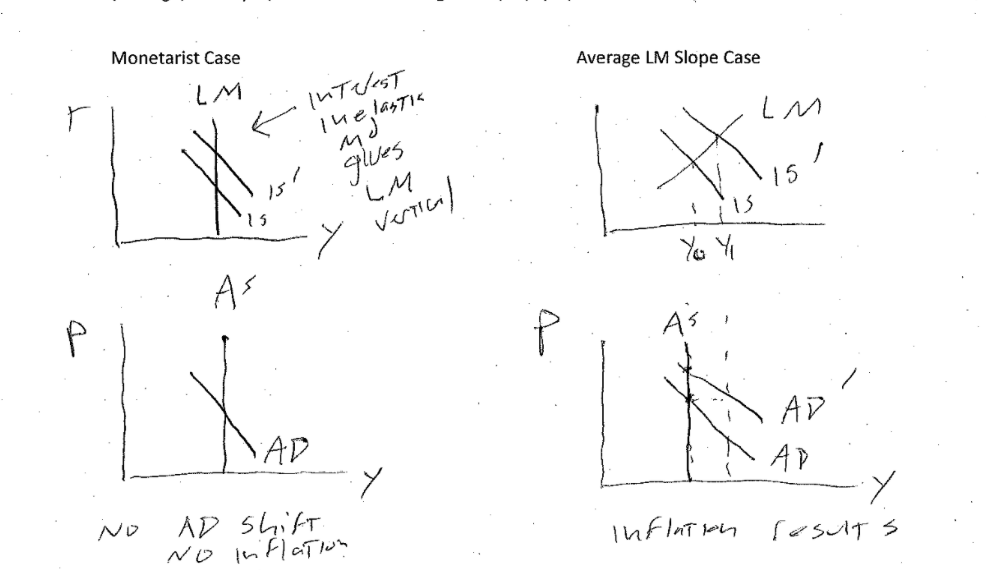 Monetarist Case
LM
r
Interest
Inelastic
Md
gives
LM
vertical
IS'
IS
Y
AS
P
AD
Y
NO AD shift
NO inflation
Average LM Slope Case
LM
IS'
IS
Y0 Y1
P
AS
AD'
AD
Y
Inflation results